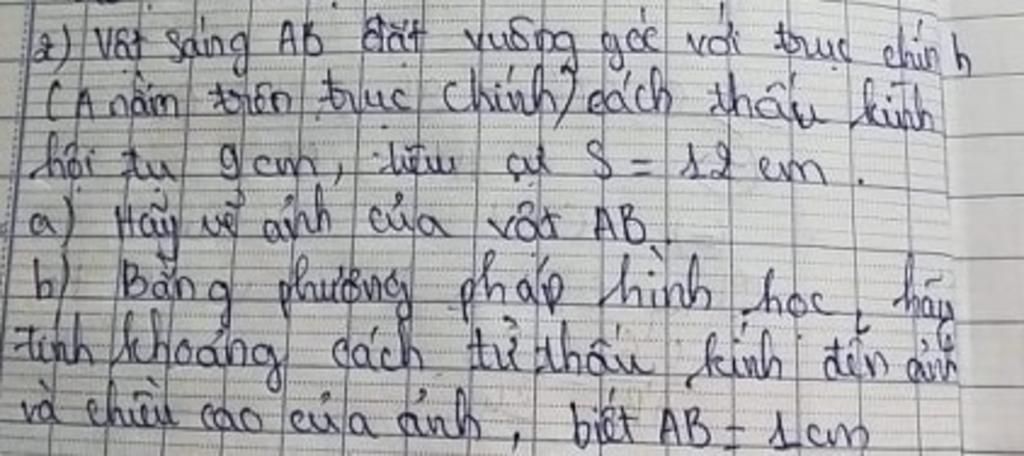 2) Vật sáng AB đặt vuông góc với trục chính
(A nằm trên trục chính) cách thấu kính
hội tụ 9cm, tiêu cự S = 12 cm.
a) Hãy vẽ ảnh của vật AB.
b) Bằng phương pháp hình học, hãy
tính khoảng cách từ thấu kính đến ảnh
và chiều cao của ảnh, biết AB = 1cm